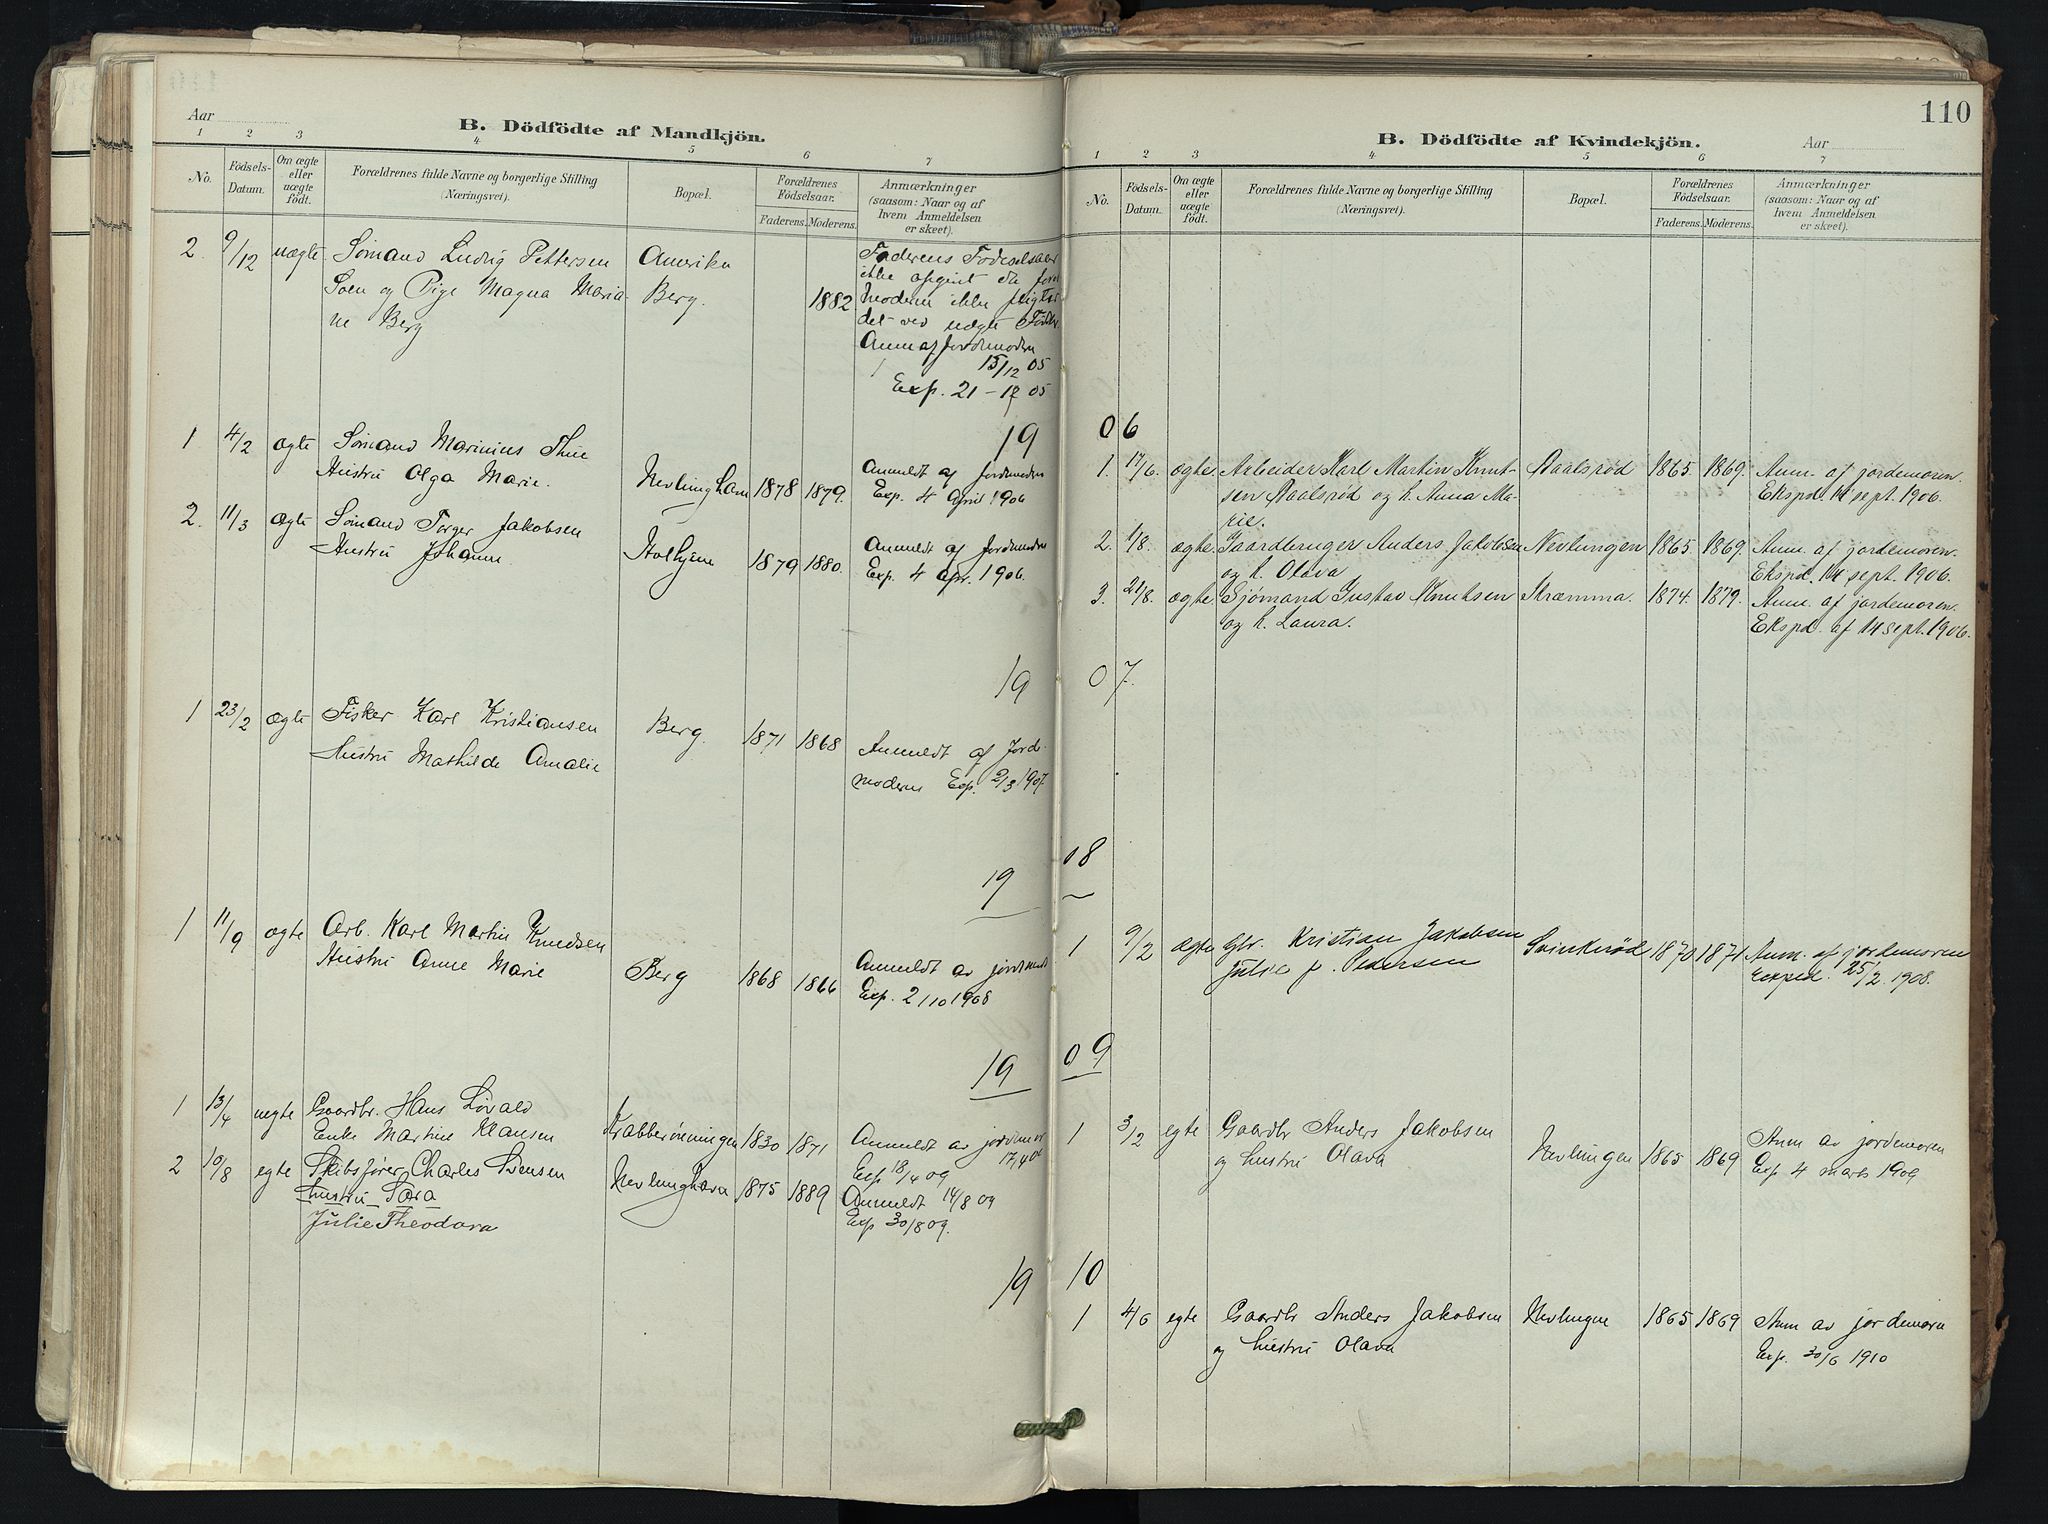 Aar
B. Dödfödte af Mandkjön.
1 2 3 4 5 6 7
No.
Födsels-Datum.
Om ægte eller uægte födt.
Forældrenes fulde Navne og borgerlige Stilling
(Næringsvei).
Bopæl.
Forældrenes Födselsaar.
Faderens. Moderens.
Anmærkninger
(saasom: Naar og af
hvem Anmeldelsen
er skeet).
2 9/12 uægte Sømand Ludvig Pettersen Amerika Faderens Fødeselsaar
og Pige Magna Maria- Berg. 1882 ikke opgivt da
ne Berg Moderen ikke
det ved uægte
Anm af Jordemoderen
15/12 05
Exp. 21-12 05
19
1 4/2 ægte Sømand Marinius Thue
Hustru Olga Marie. Nevlungham 1878 1879. Anmeldt af Jordemoderen
Exp. 4 April 1906
2. 11/3 ægte Sømand Torger Jakobsen
Hustru Johanne 1879 1880. Anmeldt af Jordemoderen
Exp. 4 Apr. 1906.
19
1 23/2 ægte Fisker Karl Kristiansen Berg. 1871 1868
Hustru Mathilde Amalie Anmeldt af Jord-
moderen Exp. 2/3 1907.
19
1 11/9 ægte Arb. Karl Martin Knudsen
Hustru Anne Marie Berg 1868 1866 Anmeldt av
Exp. 2/10 1908
19
1 13/4 uegte Gaardbr. Hans Løvald
Enke Martine Klausen Krabberønningen 1830 1871 Anmeldt av jordemor
17/4 09
Exp 18/4 09
2 10/8 egte Skibsfører Charles Svensen
hustru Sara Nevlunghavn 1875 1889 Anmeldt 14/8 09
Julie Theodora Exp 30/8 09.
19
110
B. Dödfödte af Kvindekjön.
Aar
1 2 3 4 5 6 7
No.
Födsels-Datum.
Om ægte eller uægte födt.
Forældrenes fulde Navne og borgerlige Stilling
(Næringsvei).
Bopæl.
Forældrenes Födselsaar.
Faderens. Moderens.
Anmærkninger
(saasom: Naar og af
hvem Anmeldelsen
er skeet).
06
1. 17/6. ægte. Arbeider Karl Martin Knut- Aaalsrød 1865. 1869. Anm. af jordemoren.
sen Aaalsrød og h. Anna Ma- Ekspd. 14 sept. 1906.
rie.
2. 1/8. ægte. Gaardbruger Anders Jakobsen Nevlungen 1865. 1869. Anm. af jordemoren.
og h. Olava Ekspd. 14 sept. 1906.
3. 21/8. ægte. Sjømand Gustav Knutsen Kræmma. 1874. 1879. Anm. af jordemoren.
og h. Laura. Ekspd. af 14 sept. 1906.
07.
08
1 9/2 ægte Gbr. Kristian Jakobsen Svinkerød 1870 1871 Anm. af jordemoren
Julie f. Pedersen Exped. 25/2. 1908.
09
1 3/2 egte Gaardbr Anders Jakobsen
og hustru Olava Nevlungen 1865 1869 Anm av jordemoren
Exp 4 marts 1909
10
1 4/6 egte Gaardbr Anders Jakobsen Nevlungen 1865 1869 Anm av jordemoren
og hustru Olava Exp. 30/6 1910